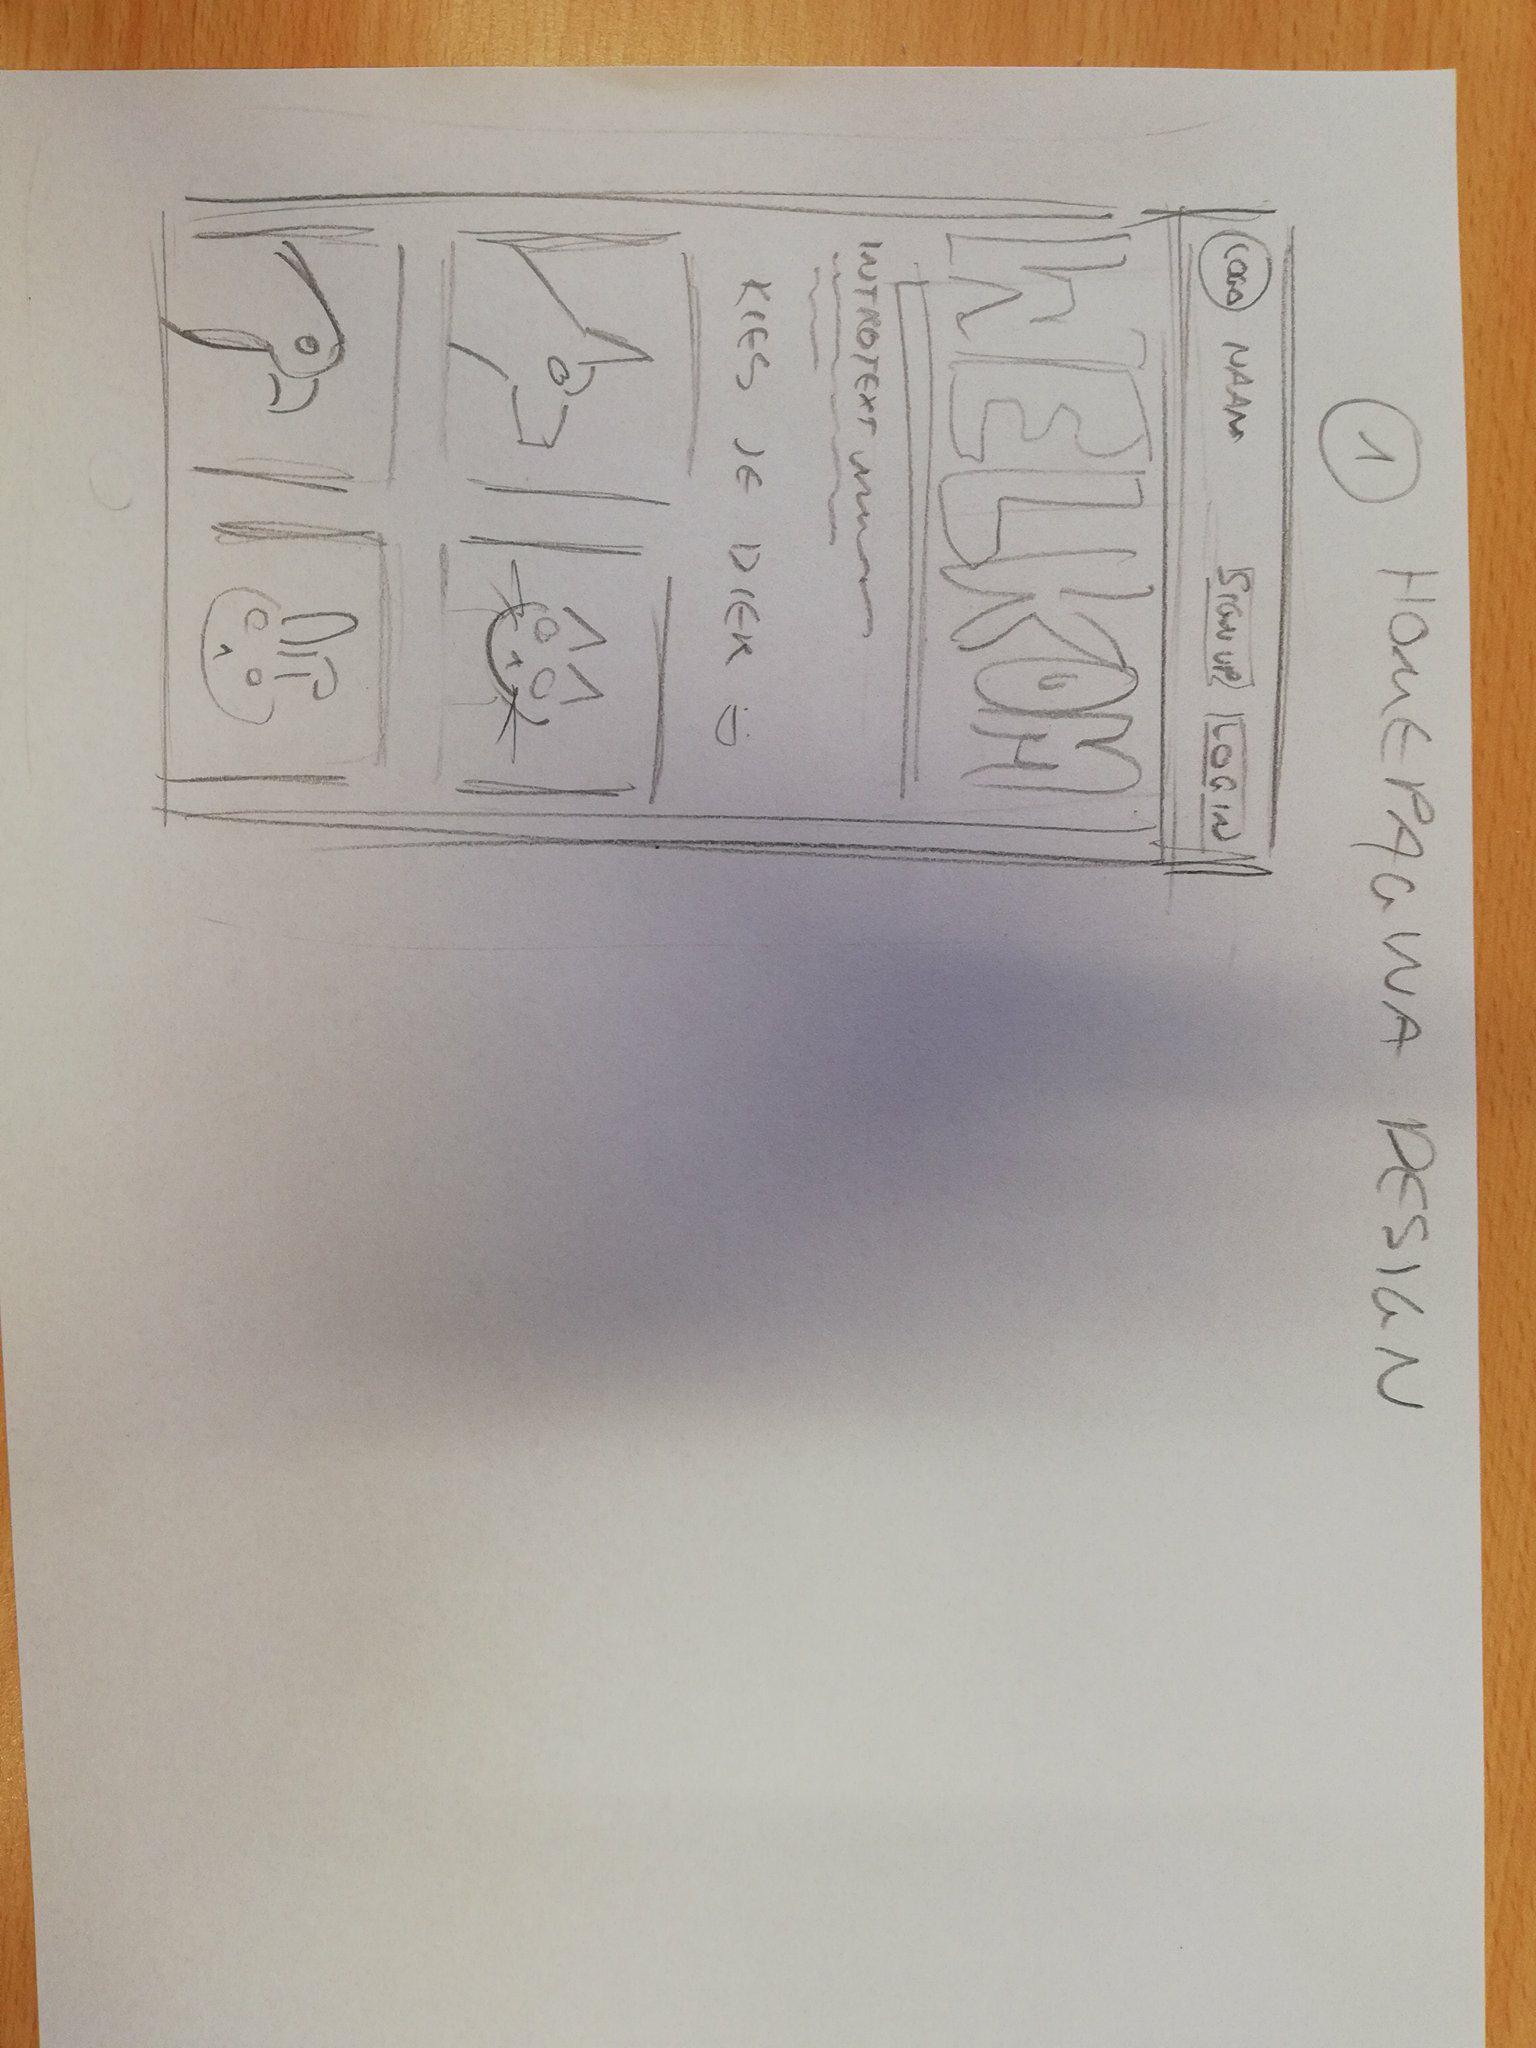 1 HOMEPAGINA DESIGN
LOGO NAAM SIGN UP LOGIN
WELKOM
INTROTEXT
KIES JE DIER